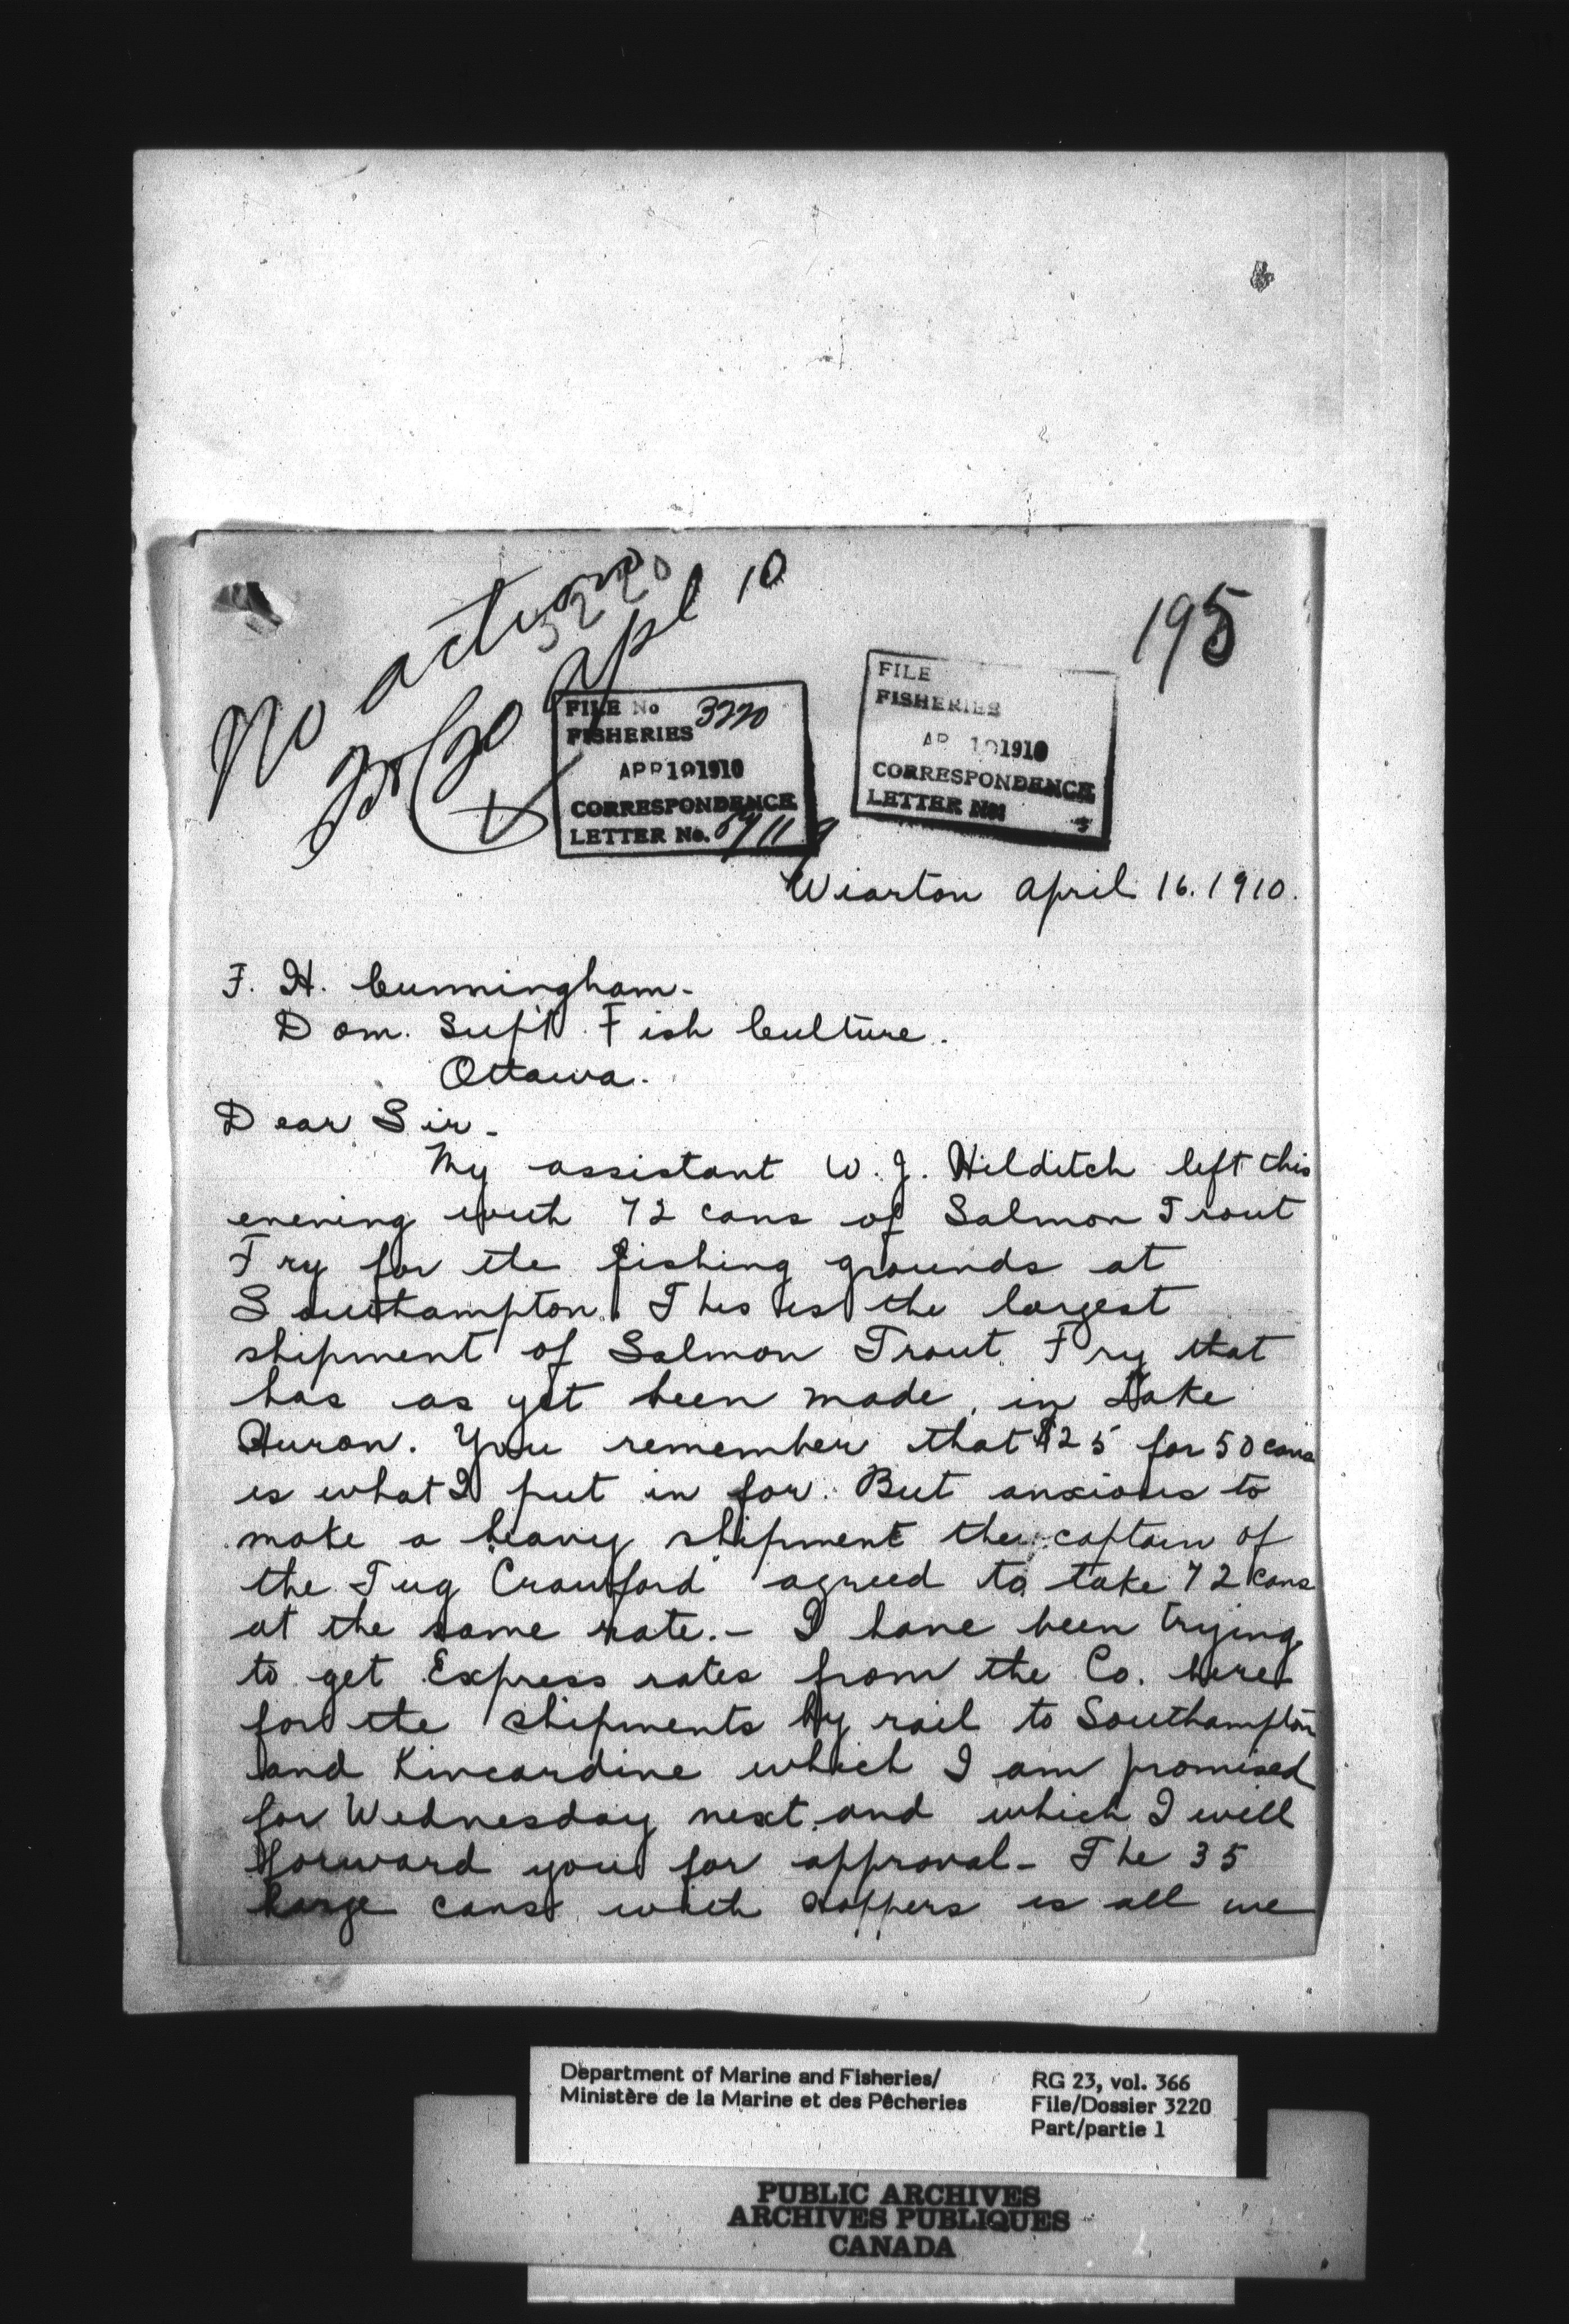 No action
3220
20 Apl 10
195
FILE No 3220
FISHERIES
APR 19 1910
CORRESPONDENCE
LETTER No.
FILE
FISHERIES
AP 19 1910
CORRESPONDENCE
LETTER No
Wiarton April 16. 1910.
F. H. Cunningham.
Dom. Supt. Fish Culture.
Ottawa.
Dear Sir-
My assistant W. J. Hilditch left this
evening with 72 cans of Salmon Trout
Fry for the fishing grounds at
Southampton. This is the largest
shipment of Salmon Trout Fry that
has as yet been made in Lake
Huron. You remember that $25 for 50 cans
is what I put in for. But anxious to
make a heavy shipment the captain of
the Tug Crawford agreed to take 72 cans
at the same rate. - I have been trying
to get Express rates from the Co. here
for the shipments by rail to Southampton
and Kincardine which I am promised
for Wednesday next and which I will
forward you for approval - The 35
large cans with coppers is all we
Department of Marine and Fisheries/
Ministère de la Marine et des Pêcheries
RG 23, vol. 366
File/Dossier 3220
Part/partie 1
PUBLIC ARCHIVES
ARCHIVES PUBLIQUES
CANADA